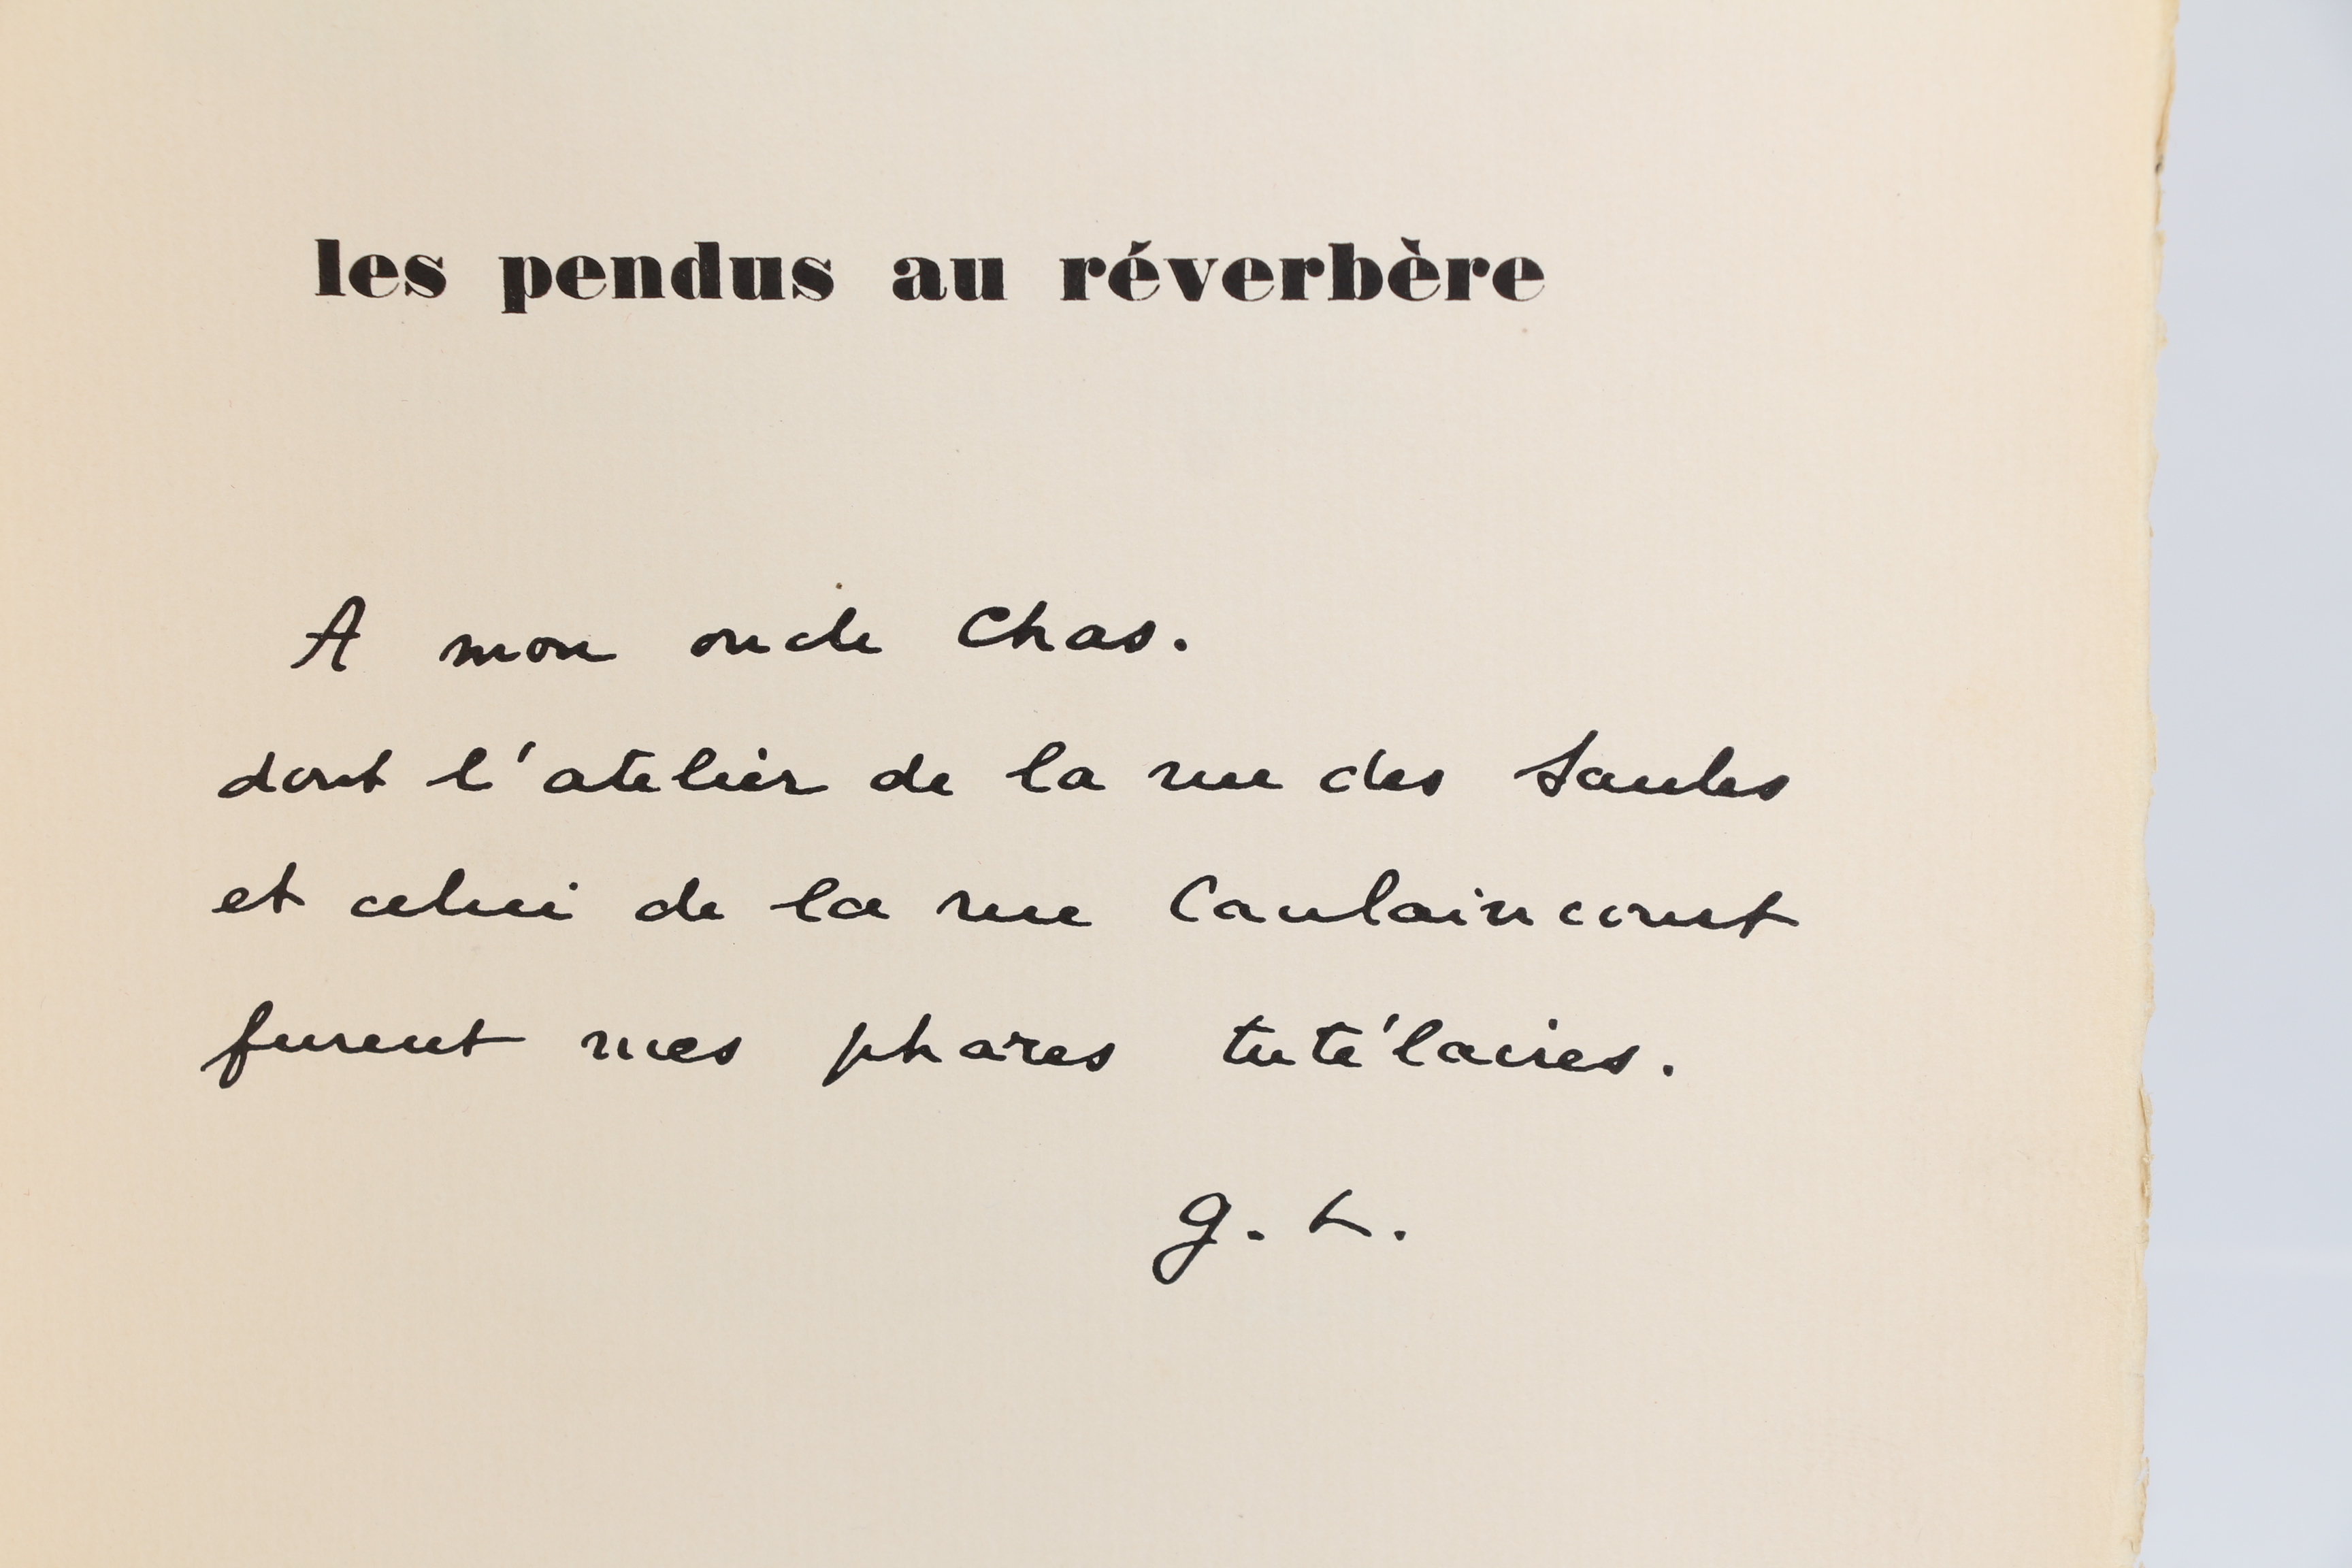 les pendus au réverbère
A mon oncle Chas.
dont l'atelier de la rue des Saules
et celui de la rue Caulaincourt
furent mes phares tutélaires.
G. L.